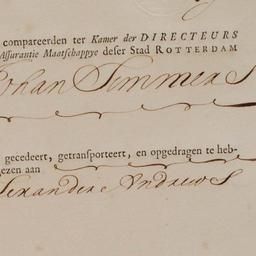 compareerden ter Kamer der DIRECTEURS
Assurantie Maatschappye deser Stad ROTTERDAM
Johan Simmers
gecedeert, getransporteert, en opgedragen te heb-
gezen aan
Alexander Andrews